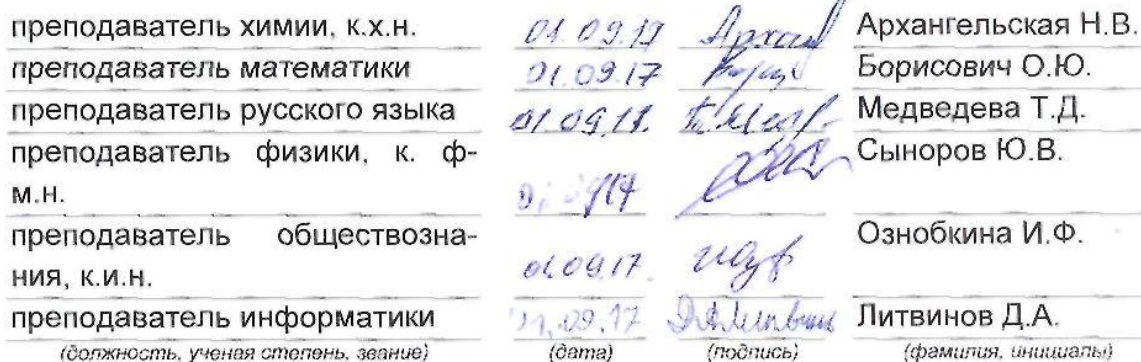 преподаватель химии, к.х.н. 01.09.17 Архангельская Н.В.
преподаватель математики 01.09.17 Борисович О.Ю.
преподаватель русского языка 01.09.17. Медведева Т.Д.
преподаватель физики, к. ф- Сыноров Ю.В.
м.н.
преподаватель обществозна- Ознобкина И.Ф.
ния, к.и.н. 01.09.17.
преподаватель информатики Литвинов Д.А.
(должность, ученая степень, звание) (дата) (подпись) (фамилия, инициалы)